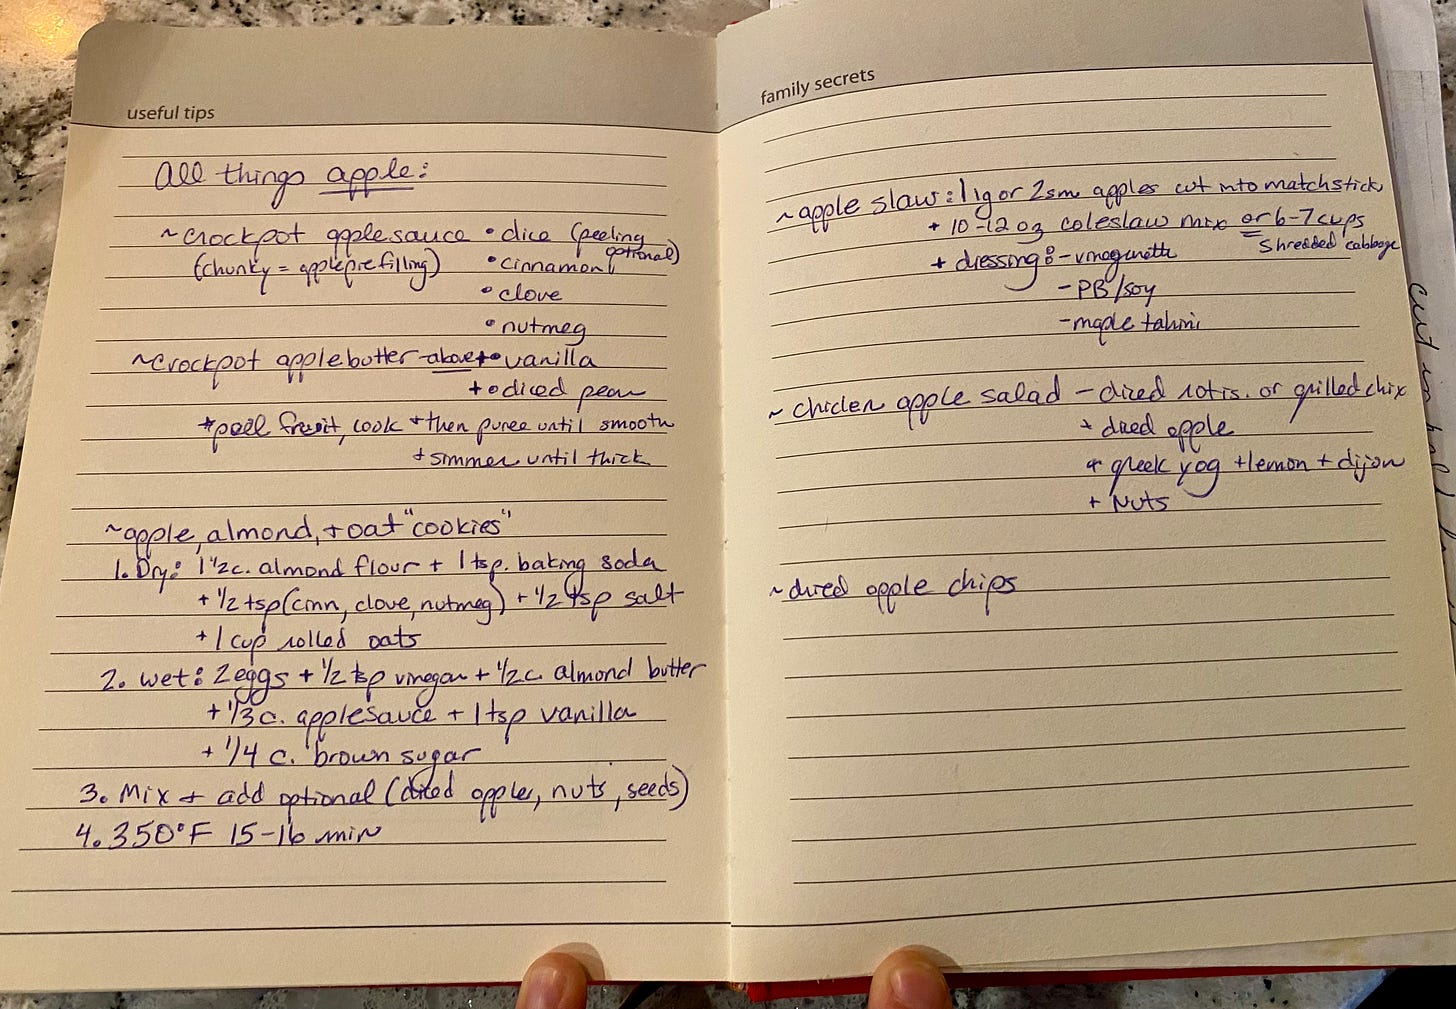 useful tips
All things apple:
~crockpot applesauce • dice (peeling optional)
(chunky = applepie filling) • cinnamon
• clove
• nutmeg
~crockpot applebutter - above + • vanilla
+ • diced pear
*peel fruit, cook + then puree until smooth
+ simmer until thick
~apple, almond, + oat "cookies"
1. Dry: 1 1/2 c. almond flour + 1 tsp. baking soda
+ 1/2 tsp (cinn, clove, nutmeg) + 1/2 tsp salt
+ 1 cup rolled oats
2. wet: 2 eggs + 1/2 tsp vinegar + 1/2 c. almond butter
+ 1/3 c. applesauce + 1 tsp vanilla
+ 1/4 c. brown sugar
3. Mix + add optional (diced apples, nuts, seeds)
4. 350°F 15-16 min
family secrets
~apple slaw: 1 lg or 2 sm apples cut into matchstick
+ 10-12 oz coleslaw mix or 6-7 cups
shredded cabbage
+ dressing: - vinegarette
- PB/soy
- maple tahini
~ chicken apple salad - diced rotis. or grilled chix
+ diced apple
+ greek yog + lemon + dijon
+ Nuts
~dried apple chips